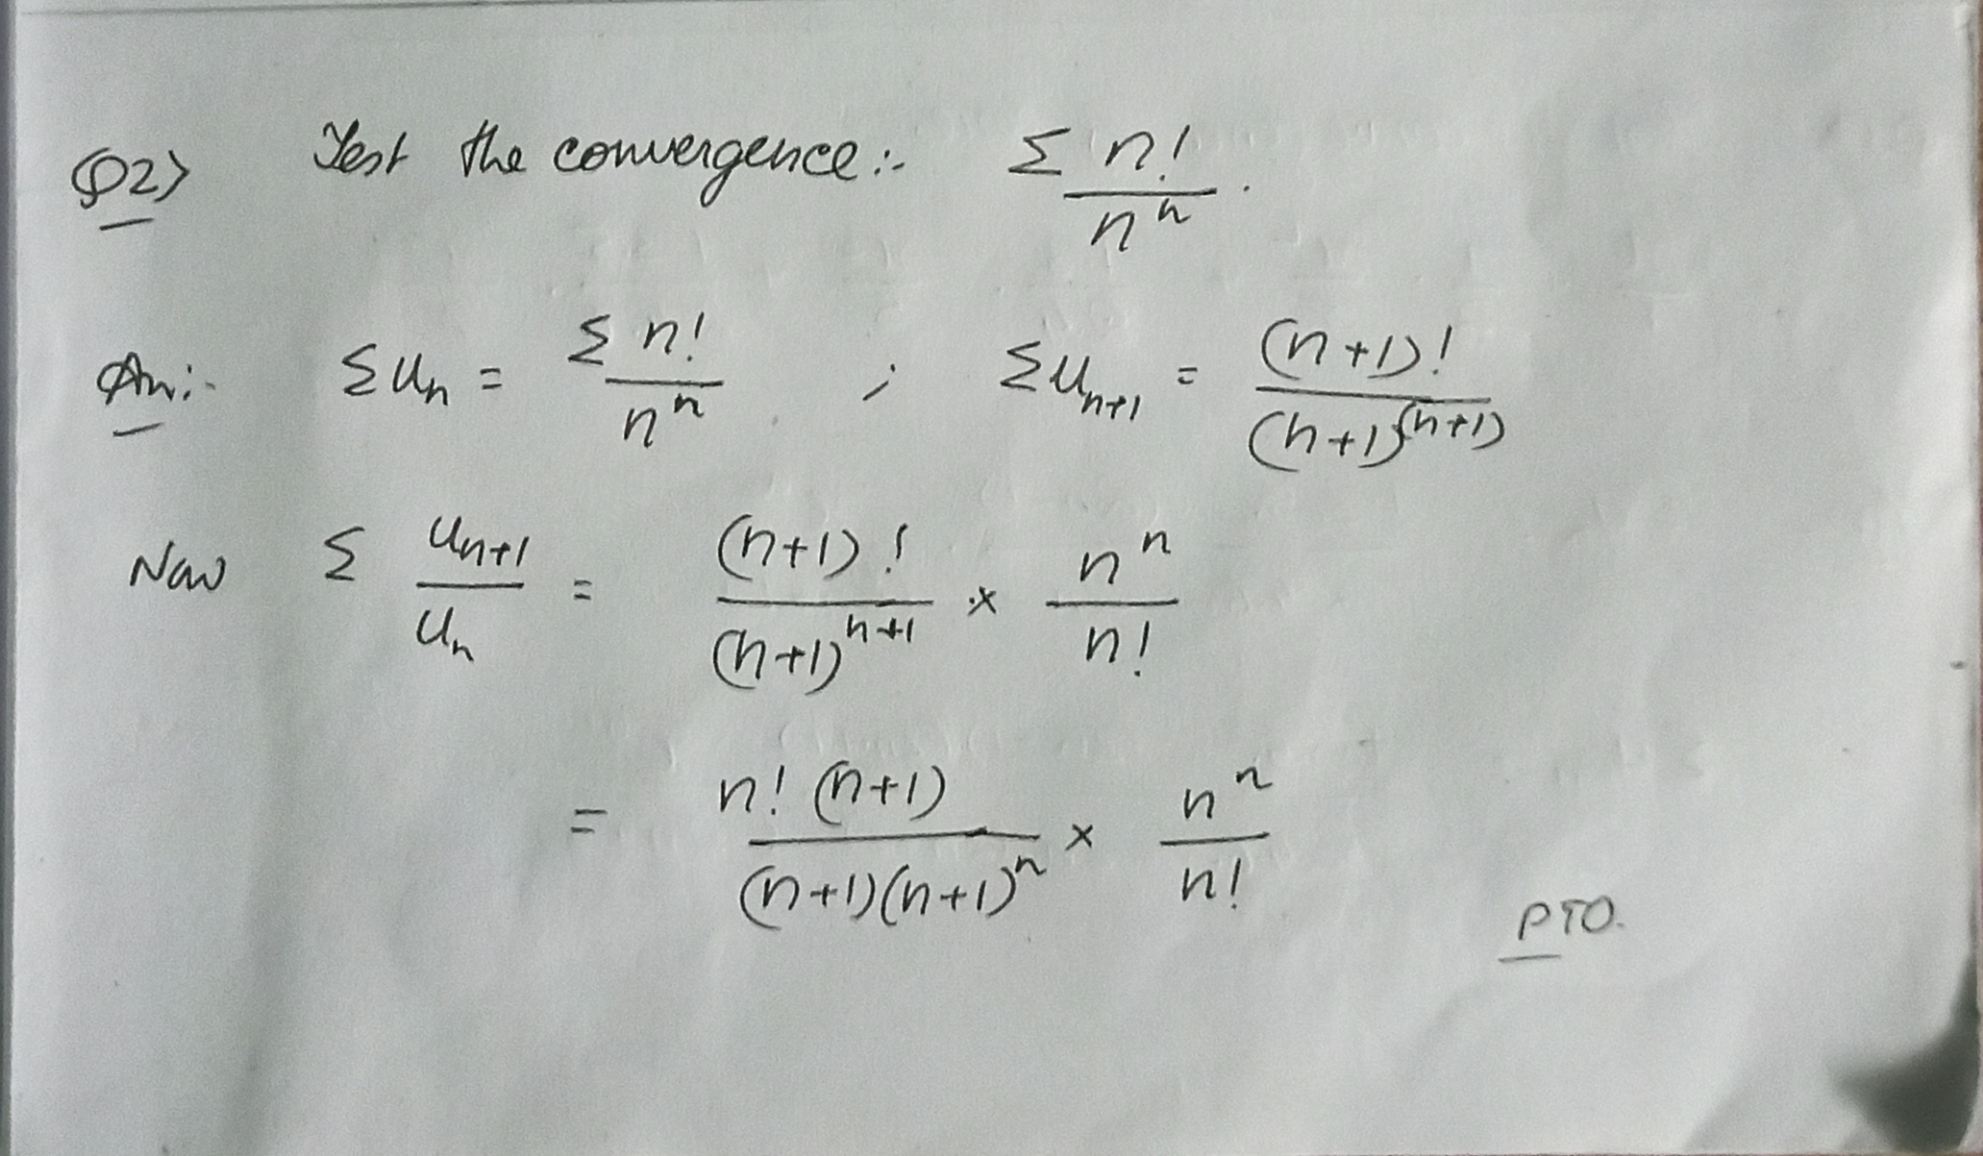 Q2> Test the convergence:- Σ n!/n^n.
An:- Σu_n = Σ n!/n^n ; Σu_{n+1} = (n+1)!/(n+1)^(n+1)
Now Σ u_{n+1}/u_n = (n+1)!/(n+1)^{n+1} × n^n/n!
= n! (n+1)/(n+1)(n+1)^n × n^n/n!
PTO.